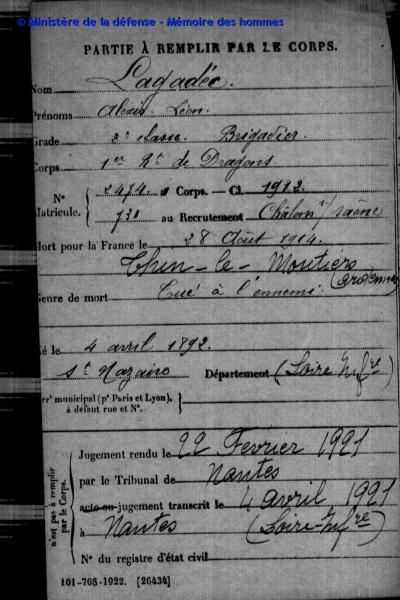 © Ministère de la défense - Mémoire des hommes
PARTIE À REMPLIR PAR LE CORPS.
Nom Lagadéc.
Prénoms Alexis Léon.
Grade 2e classe Brigadier.
Corps 1er Rt de Dragons
N° 2474 au Corps. — Cl. 1912.
Matricule. 730 au Recrutement Châlon s/ Saône
Mort pour la France le 28 Août 1914.
Thin-le-Moutiers
(Ardennes)
Genre de mort Tué à l'ennemi
Né le 4 avril 1892.
St Nazaire Département (Loire Infre)
Arrt municipal (pr Paris et Lyon),
à défaut rue et N°.
n'est pas à remplir
par le Corps.
Jugement rendu le 22 Février 1921
par le Tribunal de Nantes
acte ou jugement transcrit le 4 avril 1921
à Nantes (Loire-Infre)
N° du registre d'état civil
101-708-1922. [26434]